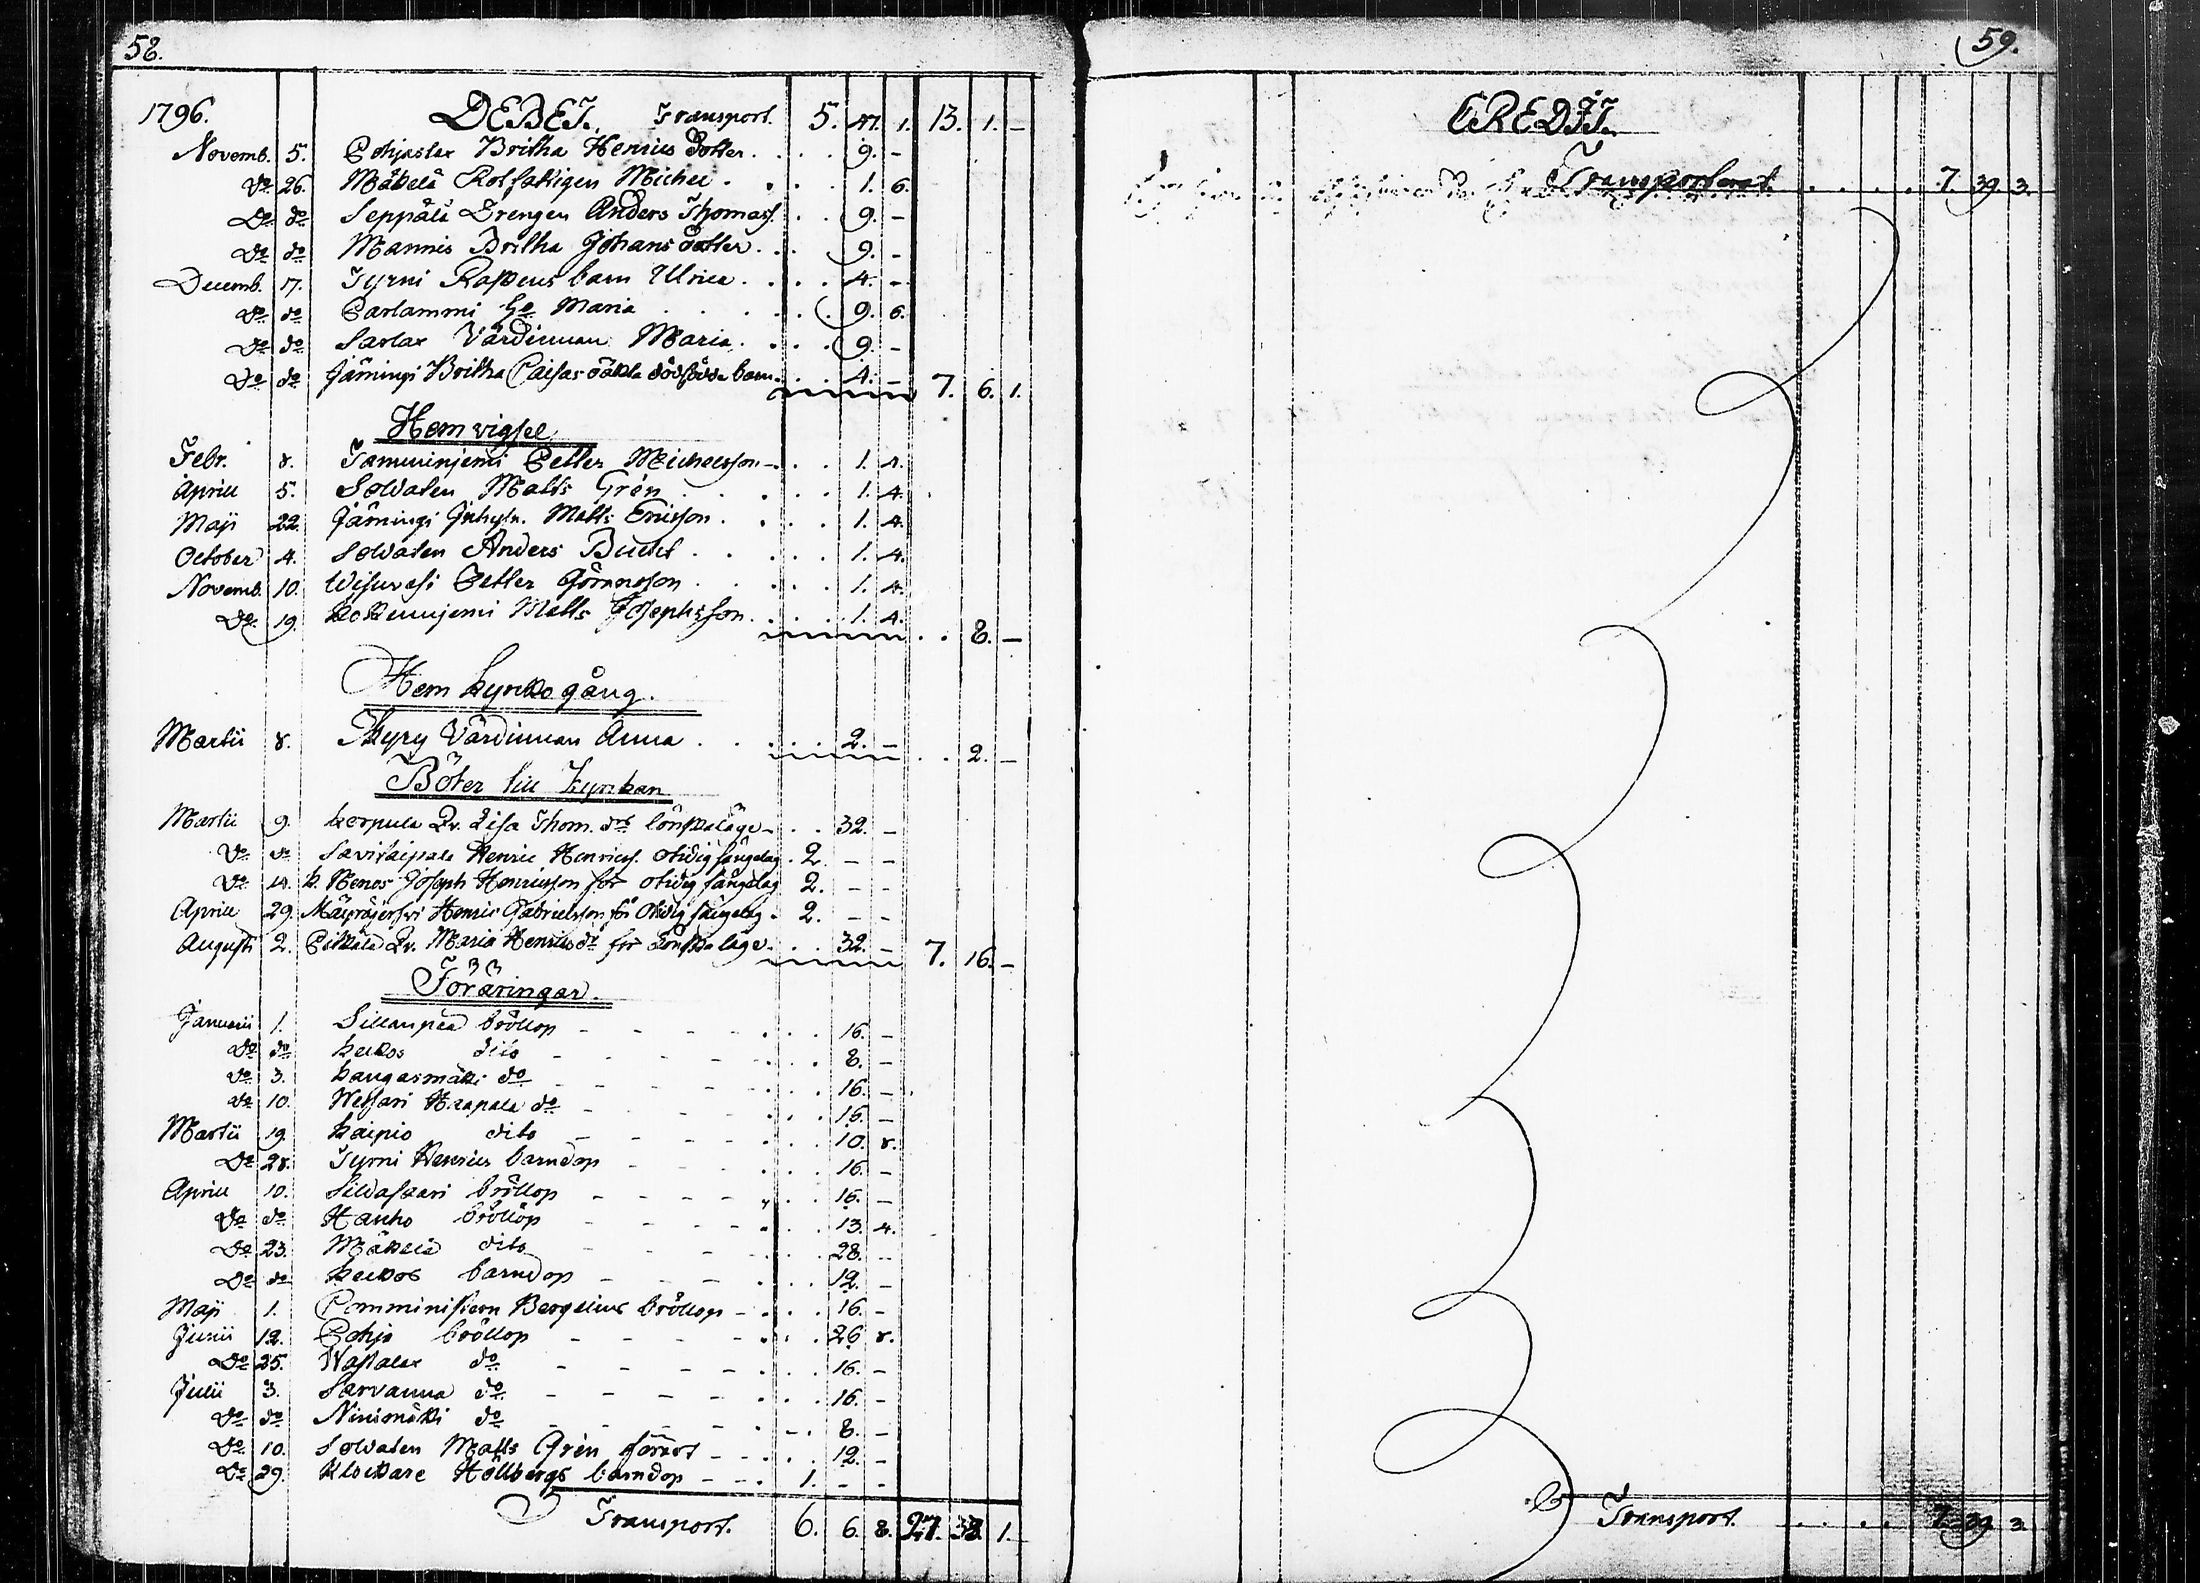 58.
1796. DEBET. Transport. 5. 47. 1. 13. 1. –
Novemb. 5. Pohjaslax Britha Henrics dotter. 9. –
Do 26. Mäkelä Rotfattigen Michel. 1. 6.
Do do Seppälä Drengen Anders Thomass. 9. –
Do do Mannis Britha Johans dotter. 9. –
Decemb. 17. Tyrni barn Ulrica. 4. –
Do do Parlammi Maria 9. 6.
Do do Sarlax Värdinnan Maria. 9. –
Do do Jämingi Britha Caisas oäkta dödfödda barn. 4. – 7. 6. 1.
Hemvigsel
Febr. 8. Tamminjemi Petter Michelsson 1. 4.
Aprill 5. Soldaten Matts Grén 1. 4.
Maji 22. Jämingi Inhysn. Matts Ericsson. 1. 4.
October 4. Soldaten Anders Bucht. 1. 4.
Novemb. 10. Wisuvesi Petter Göransson. 1. 4.
Do. 19. Kokkunjemi Matts Josephsson. 1. 4. 8. –
Hem kyrkogång.
Martii 8. Kyry Värdinnan Anna. 2. – 2. –
Böter till kyrkan
Martii 9. Kerpula Lisa Thom. dr lönskaläge 32. –
Do do Savitaipale Henric Henricss. otidig sängelag. 2. – –
Do 14. K. Henos Joseph Henricsson för otidig sängelag 2. – –
Aprill 29. Mäyräjerfvi Henric Gabrielsson för otidig sängelag. 2. – –
Augusti 2. Pitkälä Maria Henricsdr för Lönskaläge. 32. – 7. 16. –
Föräringar.
Januarii 1. Sillanpää bröllop 16. –
Do do Keckos dito 8. –
Do 3. Kangasmäki do 16. –
Do 10. Haapala do 16. –
Martii 19. Kaipio dito 10. 8.
Do 28. Tyrni Henrics barndop 16. –
Aprill 10. Sildaskari bröllop 16. –
Do do Hanho bröllop 13. 4.
Do 23. Mäkelä dito 28. –
Do do Keckos barndop 12. –
Maji 1. Comministern Bergelius bröllop 16. –
Junii 12. Pohjo bröllop 26. 8.
Do 25. Wastalax do 16. –
Julii 3. Sarvanna do 16. –
Do do Ninimäki do 8. –
Do. 10. Soldaten Matts Grén förärt 12. –
Do 29. Klockare Hällbergs barndop 1. – –
Transport. 6. 6. 8. 27. 33. 1.
59.
CREDIT.
Transporterat. 7. 39 3.
Transport. 7. 39 3.